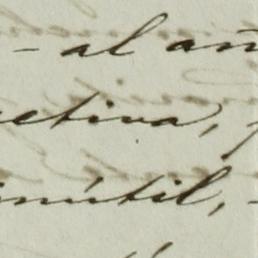 - al añ
ectiva,
inútil, -